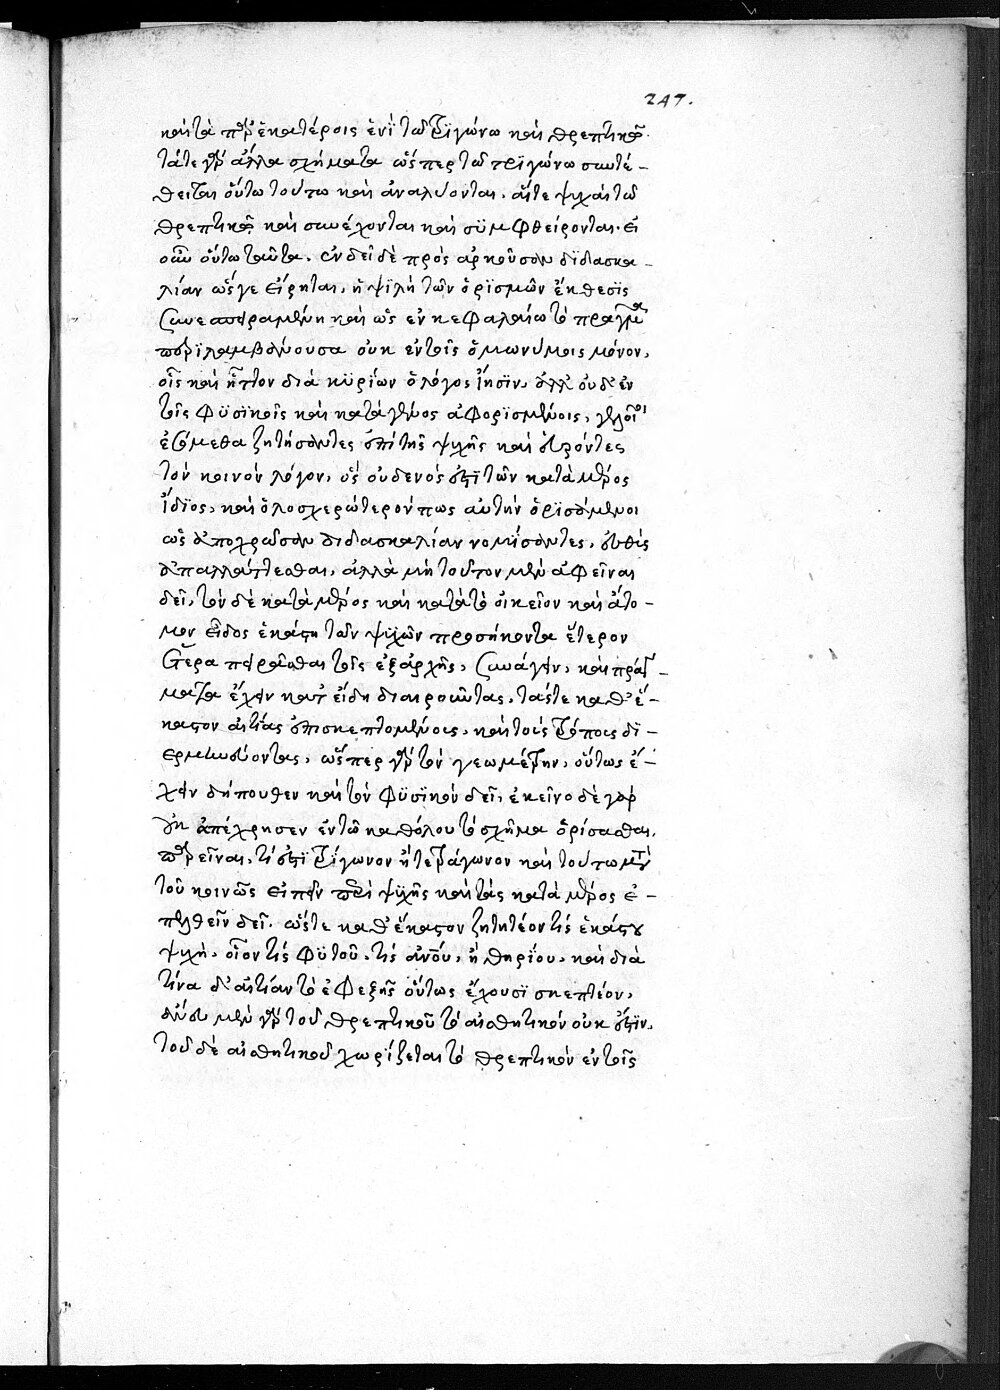 247.
καὶ τὰ παρ' ἑκατέροις ἑνὶ τῷ τριγώνω καὶ θρεπτικῷ.
τά τε γὰρ ἄλλα σχήματα ὥσπερ τῷ τριγώνω συντέ-
θειται οὕτω τούτω καὶ ἀναλύονται. αἵτε ψυχαὶ τῷ
θρεπτικῷ καὶ συνέχονται καὶ συμφθείρονται. εἰ
οὖν οὕτω ταῦτα. ἐνδεῖ δὲ πρὸς ἀρκοῦσαν διδασκα-
λίαν ὥς γε εἴρηται, ἡ ψιλὴ τῶν ὁρισμῶν ἔκθεσις
συνεσπειραμένη καὶ ὡς ἐν κεφαλαίω τὸ πρᾶγμα
περιλαμβάνουσα οὐκ ἐν τοῖς ὁμωνύμοις μόνον,
οἷς καὶ ἧττον διὰ κυρίων ὁ λόγος ἴησιν, ἀλλ' οὐδ' ἐν
τοῖς φυσικοῖς καὶ κατὰ γένος ἀφορισμένοις, γελοῖοι
ἐσόμεθα ζητήσαντες ἐπὶ τῆς ψυχῆς καὶ εὑρόντες
τὸν κοινὸν λόγον, ὃς οὐδενός ἐστι τῶν κατὰ μέρος
ἴδιος, καὶ ὁλοσχερώτερόν πως αὐτὴν ὁρισάμενοι
ὡς ἀποχρῶσαν διδασκαλίαν νομίσαντες, εὐθὺς
ἀπαλλάττεσθαι, ἀλλὰ μὴ τοῦτον μὲν ἀφεῖναι
δεῖ, τὸν δὲ κατὰ μέρος καὶ κατὰ τὸ οἰκεῖον καὶ ἄτο-
μον εἶδος ἑκάστη τῶν ψυχῶν προσήκοντα ἕτερον
ἑτέρα πειρᾶσθαι τοῖς ἐξαρχῆς, συνάγειν, καὶ πράγ-
ματα ἔχειν κατ' εἴδη διαιροῦντας, τάς τε καθ' ἕ-
καστον αἰτίας ἐπισκεπτομένοις, καὶ τοὺς τρόπους δι-
ερμηνεύοντας, ὥσπερ γὰρ τὸν γεωμέτρην, οὕτως ἔ-
χειν δήπουθεν καὶ τὸν φυσικὸν δεῖ, ἐκεῖνο δὲ γὰρ
οὐκ ἀπέχρησεν ἐν τῷ καθόλου τὸ σχῆμα ὁρίσασθαι,
παρεῖναι, τί ἐστι τρίγωνον ἢ τετράγωνον καὶ τούτω μετὰ
τοῦ κοινῶς εἰπεῖν περὶ ψυχῆς καὶ τὰς κατὰ μέρος ἐ-
πελθεῖν δεῖ. ὥστε καθ' ἕκαστον ζητητέον τίς ἑκάστου
ψυχὴ, οἷον τίς φυτοῦ, τίς ἀνου, ἢ θηρίου, καὶ διὰ
τίνα δ' αἰτίαν τὸ ἐφεξῆς οὕτως ἔχουσι σκεπτέον,
ἄνευ μὲν γὰρ τοῦ θρεπτικοῦ τὸ αἰσθητικὸν οὐκ ἔστιν,
τοῦ δὲ αἰσθητικοῦ χωρίζεται τὸ θρεπτικὸν ἐν τοῖς